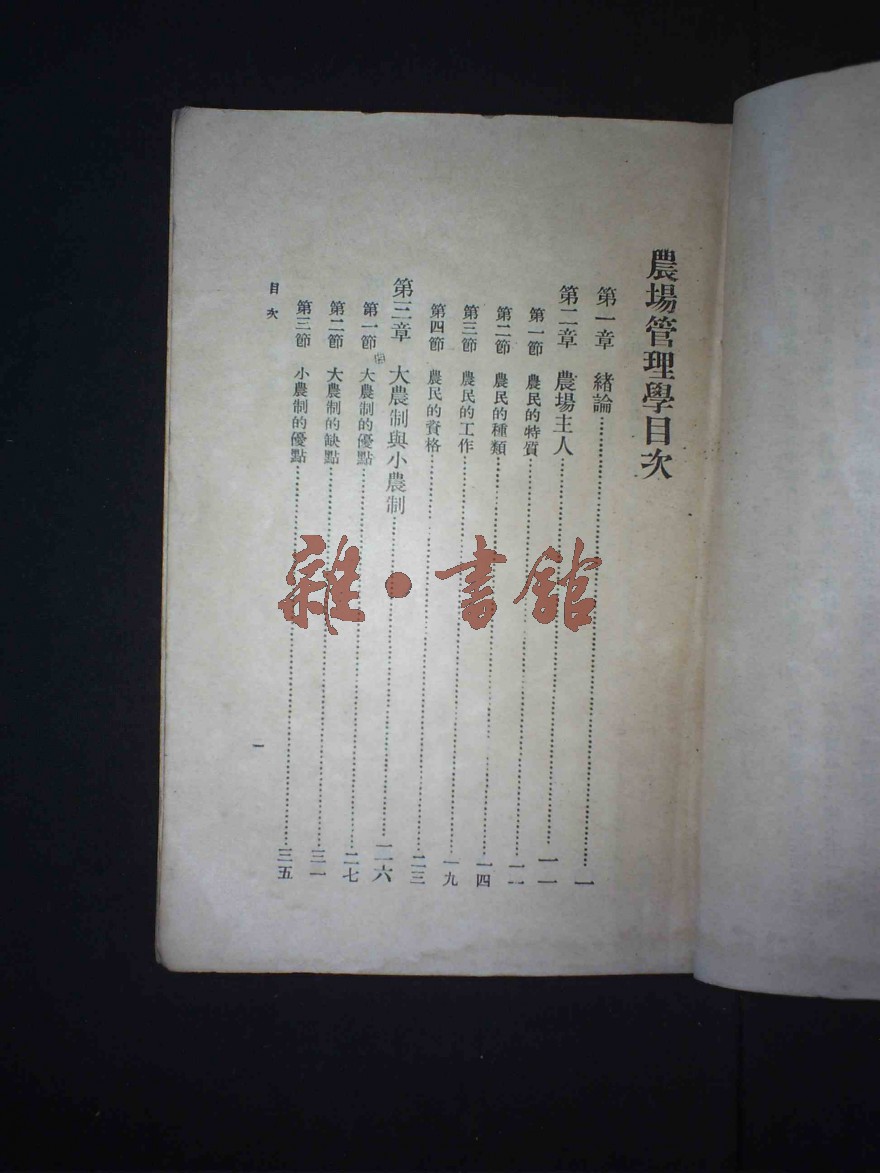 農場管理學目次
第一章 緒論………一
第二章 農場主人………一一
第一節 農民的特質………一一
第二節 農民的種類………一四
第三節 農民的工作………一九
第四節 農民的資格………二三
第三章 大農制與小農制………二六
第一節 大農制的優點………二七
第二節 大農制的缺點………三一
第三節 小農制的優點………三五
目次
一
雜·書館